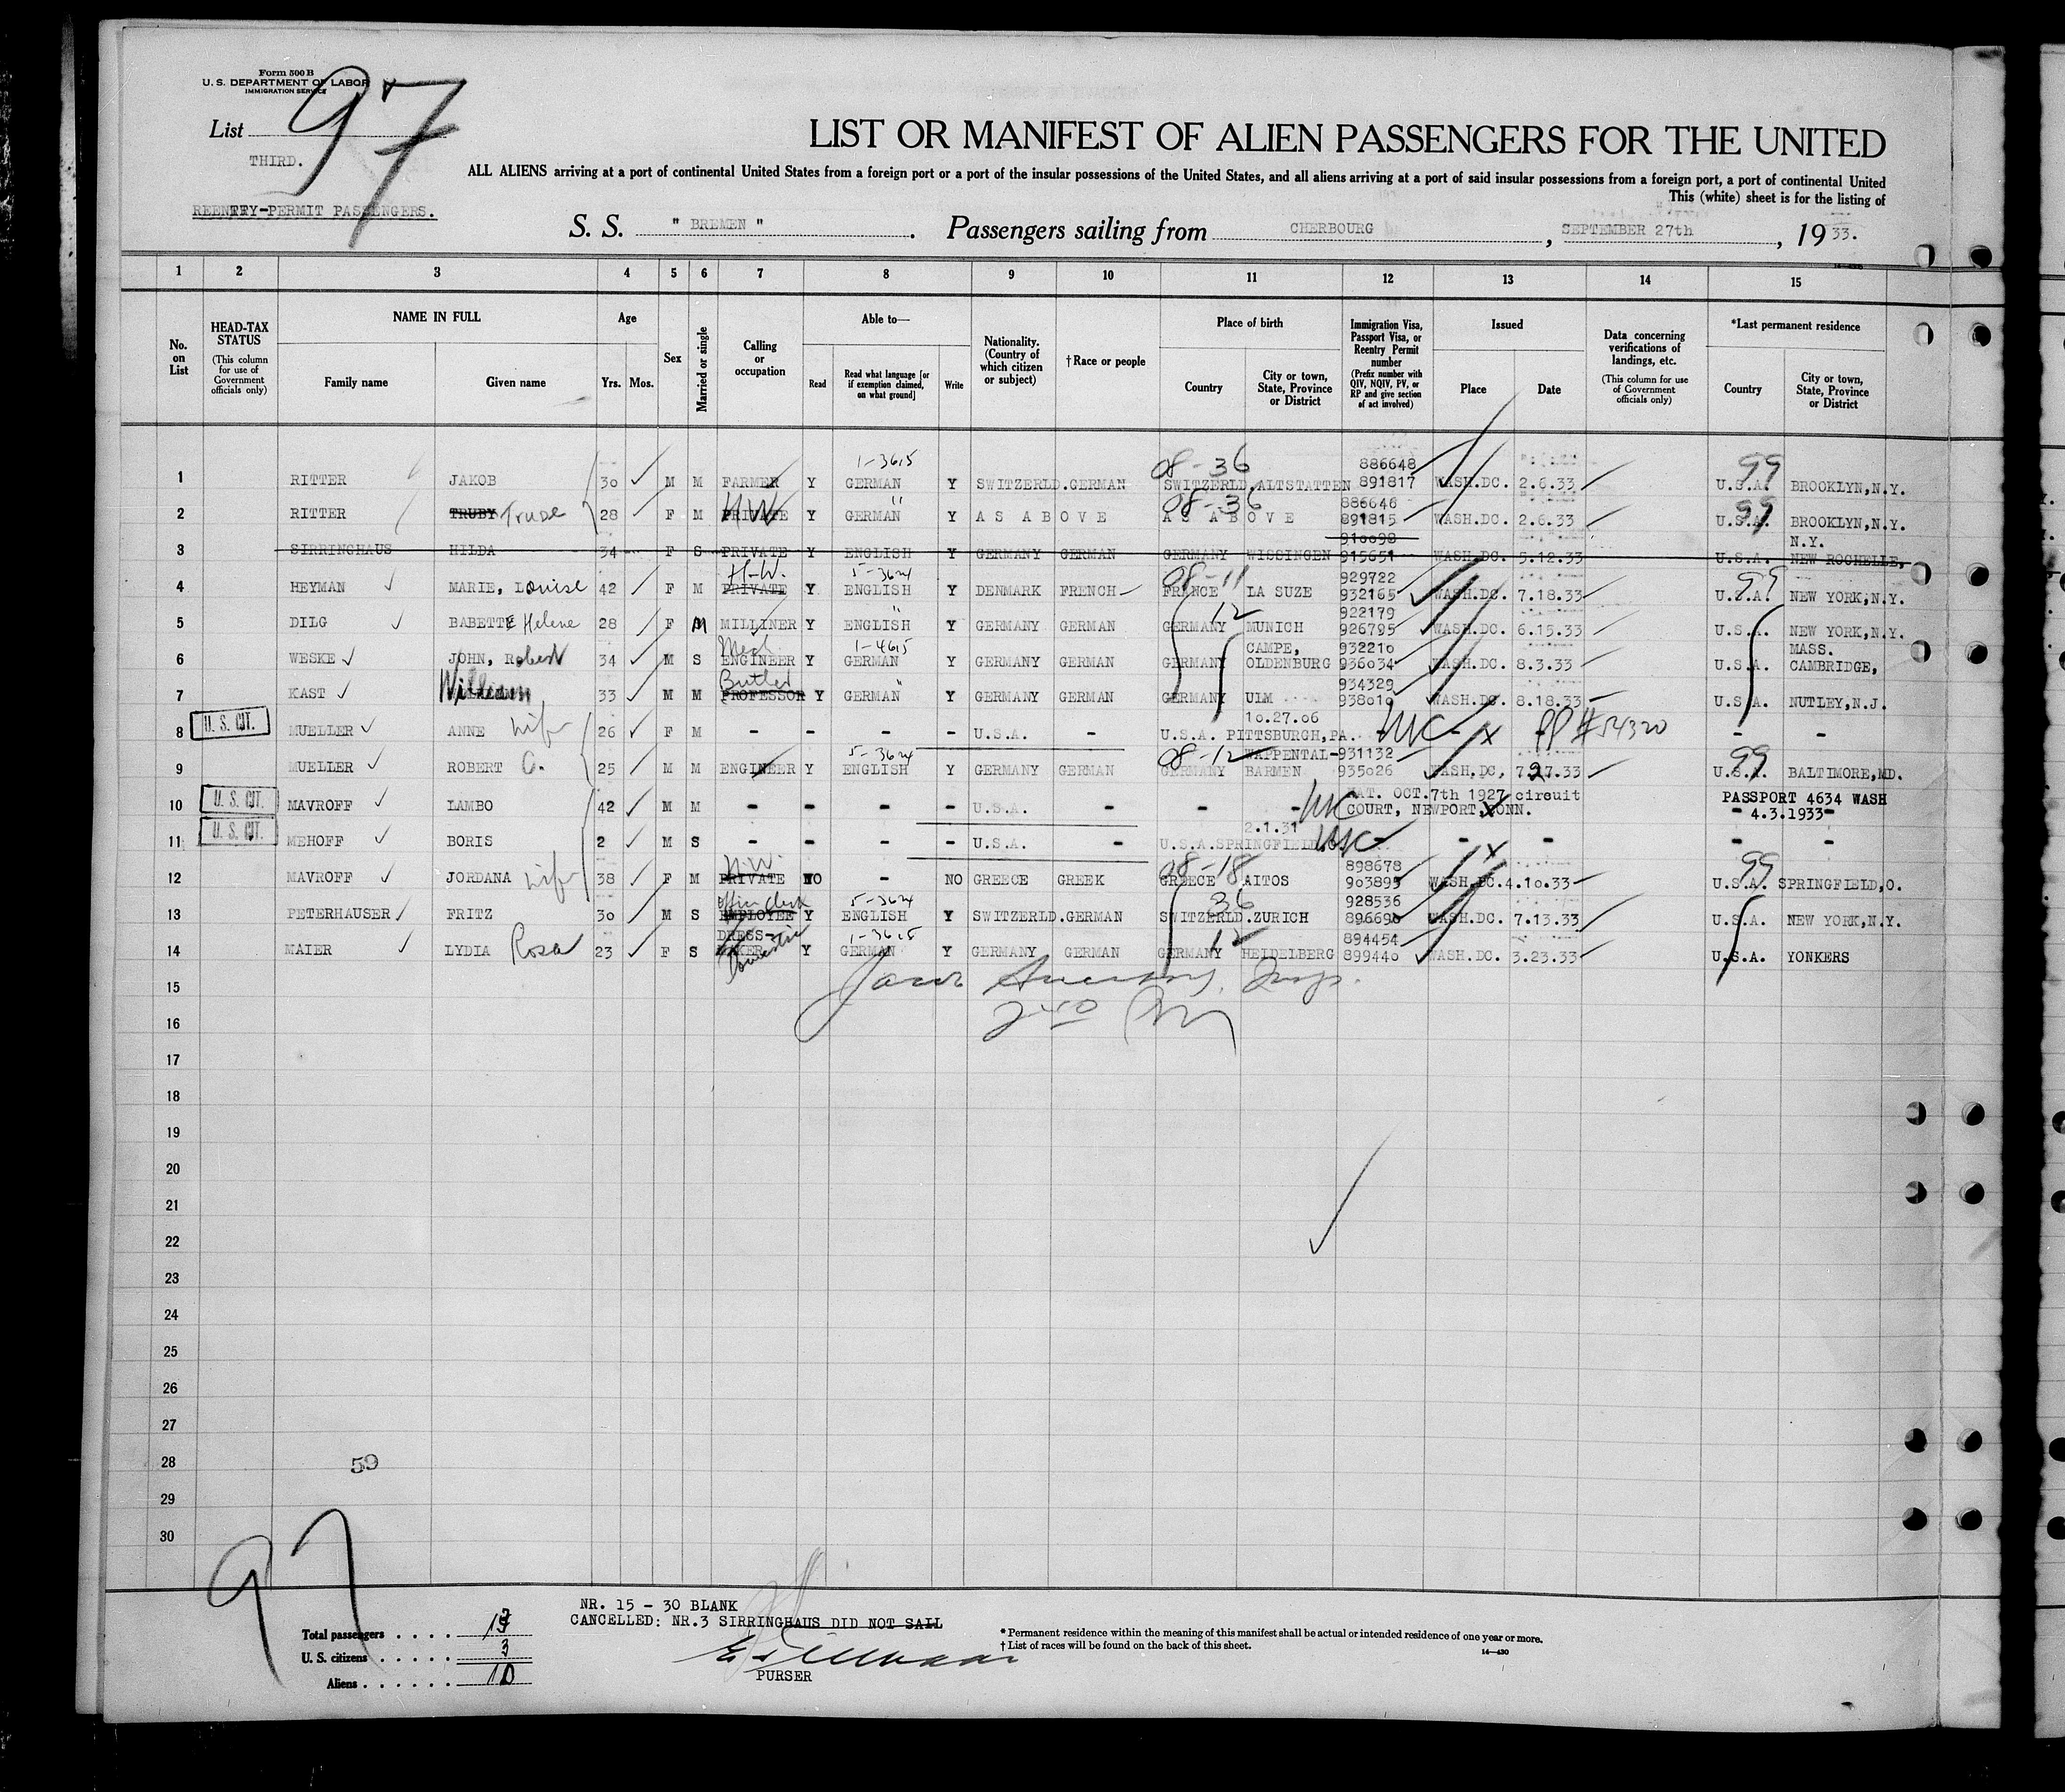 Form 500 B
U. S. DEPARTMENT OF LABOR
IMMIGRATION SERVICE
List 97
THIRD.
REENTRY-PERMIT PASSENGERS.
LIST OR MANIFEST OF ALIEN PASSENGERS FOR THE UNITED
ALL ALIENS arriving at a port of continental United States from a foreign port or a port of the insular possessions of the United States, and all aliens arriving at a port of said insular possessions from a foreign port, a port of continental United
This (white) sheet is for the listing of
S. S. " BREMEN ". Passengers sailing from CHERBOURG, SEPTEMBER 27th, 19 33.
1 2 3 4 5 6 7 8 9 10 11 12 13 14 15
No. on List
HEAD-TAX STATUS (This column for use of Government officials only)
NAME IN FULL Family name Given name
Age Yrs. Mos.
Sex
Married or single
Calling or occupation
Able to— Read Read what language [or if exemption claimed, on what ground] Write
Nationality. (Country of which citizen or subject)
†Race or people
Place of birth Country City or town, State, Province or District
Immigration Visa, Passport Visa, or Reentry Permit number (Prefix number with QIV, NQIV, PV, or RP and give section of act involved)
Issued Place Date
Data concerning verifications of landings, etc. (This column for use of Government officials only)
*Last permanent residence Country City or town, State, Province or District
1-3615 08-36 886648 99
1 RITTER JAKOB 30 M M FARMER Y GERMAN Y SWITZERLD. GERMAN SWITZERLD. ALTSTATTEN 891817 WASH.DC. 2.6.33 U.S.A. BROOKLYN,N.Y.
HW " 08-36 886646 99
2 RITTER TRUBY Trude 28 F M PRIVATE Y GERMAN Y AS ABOVE AS ABOVE 891815 WASH.DC. 2.6.33 U.S.A. BROOKLYN,N.Y.
910098 N.Y.
3 SIRRINGHAUS HILDA 34 F S PRIVATE Y ENGLISH Y GERMANY GERMAN GERMANY WISSINGEN 915651 WASH.DC. 5.12.33 U.S.A. NEW ROCHELLE,
H-W. 5-3624 08-11 929722 99
4 HEYMAN MARIE, Louise 42 F M PRIVATE Y ENGLISH Y DENMARK FRENCH FRANCE LA SUZE 932165 WASH.DC. 7.18.33 U.S.A. NEW YORK,N.Y.
" 12 922179
5 DILG BABETTE Helene 28 F M MILLINER Y ENGLISH Y GERMANY GERMAN GERMANY MUNICH 926795 WASH.DC. 6.15.33 U.S.A. NEW YORK,N.Y.
Mech 1-4615 CAMPE, 932210 MASS.
6 WESKE JOHN, Robert 34 M S ENGINEER Y GERMAN Y GERMANY GERMAN GERMANY OLDENBURG 936034 WASH.DC. 8.3.33 U.S.A. CAMBRIDGE,
Butler " 934329
7 KAST William 33 M M PROFESSOR Y GERMAN Y GERMANY GERMAN GERMANY ULM 938019 WASH.DC. 8.18.33 U.S.A. NUTLEY,N.J.
10.27.06
U.S. CIT. 8 MUELLER ANNE wife 26 F M - - - U.S.A. - U.S.A. PITTSBURGH,PA. - x PP # 54320 - -
5-3624 08-12 WAPPENTAL- 931132 99
9 MUELLER ROBERT C. 25 M M ENGINEER Y ENGLISH Y GERMANY GERMAN GERMANY BARMEN 935026 WASH.DC, 7.27.33 U.S.A. BALTIMORE,MD.
NAT. OCT.7th 1927 circuit PASSPORT 4634 WASH
U.S. CIT. 10 MAVROFF LAMBO 42 M M - - - - U.S.A. - - - COURT, NEWPORT.CONN. - 4.3.1933-
2.1.31
U.S. CIT. 11 MEHOFF BORIS 2 M S - - - - U.S.A. - U.S.A. SPRINGFIELD,O. - - - - -
H.W. 08-18 898678 99
12 MAVROFF JORDANA wife 38 F M PRIVATE NO - NO GREECE GREEK GREECE AITOS 903895 WASH.DC. 4.10.33 U.S.A. SPRINGFIELD,O.
office clerk 5-3624 36 928536
13 PETERHAUSER FRITZ 30 M S EMPLOYEE Y ENGLISH Y SWITZERLD. GERMAN SWITZERLD. ZURICH 896690 WASH.DC. 7.13.33 U.S.A. NEW YORK,N.Y.
DRESS- 1-3615 12 894454
14 MAIER LYDIA Rosa 23 F S MAKER Domestic Y GERMAN Y GERMANY GERMAN GERMANY HEIDELBERG 899440 WASH.DC. 3.23.33 U.S.A. YONKERS
15
16
17
18
19
20
21
22
23
24
25
26
27
28
29
30
59
97
NR. 15 - 30 BLANK
CANCELLED: NR.3 SIRRINGHAUS DID NOT SAIL
PURSER
Total passengers . . . . 13
U. S. citizens . . . . . 3
Aliens . . . . . . 10
* Permanent residence within the meaning of this manifest shall be actual or intended residence of one year or more.
† List of races will be found on the back of this sheet.
14—430